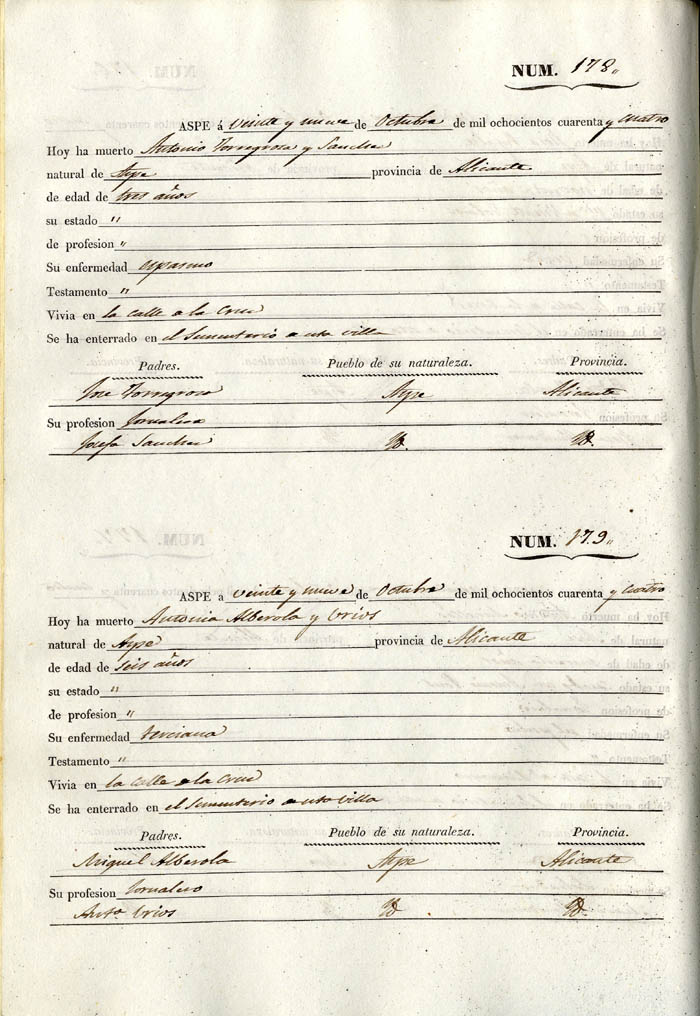 NUM. 178,,
ASPE á veinte y nueve de Octubre de mil ochocientos cuarenta y cuatro
Hoy ha muerto Antonio Torregrosa y Sanchez
natural de Aspe provincia de Alicante
de edad de tres años
su estado "
de profesion "
Su enfermedad espasmo
Testamento "
Vivia en la calle e la Cruz
Se ha enterrado en el Sementerio e esta villa
Padres. Pueblo de su naturaleza. Provincia.
Jose Torregrosa Aspe Alicante
Su profesion Jornalero
Josefa Sanchez Yd. Yd.
NUM. 179,,
ASPE a veinte y nueve de Octubre de mil ochocientos cuarenta y cuatro
Hoy ha muerto Antonia Alberola y Orios
natural de Aspe provincia de Alicante
de edad de seis años
su estado "
de profesion "
Su enfermedad terciana
Testamento "
Vivia en la calle e la Cruz
Se ha enterrado en el Sementerio e esta villa
Padres. Pueblo de su naturaleza. Provincia.
Miguel Alberola Aspe Alicante
Su profesion Jornalero
Anta. Orios Yd Yd.